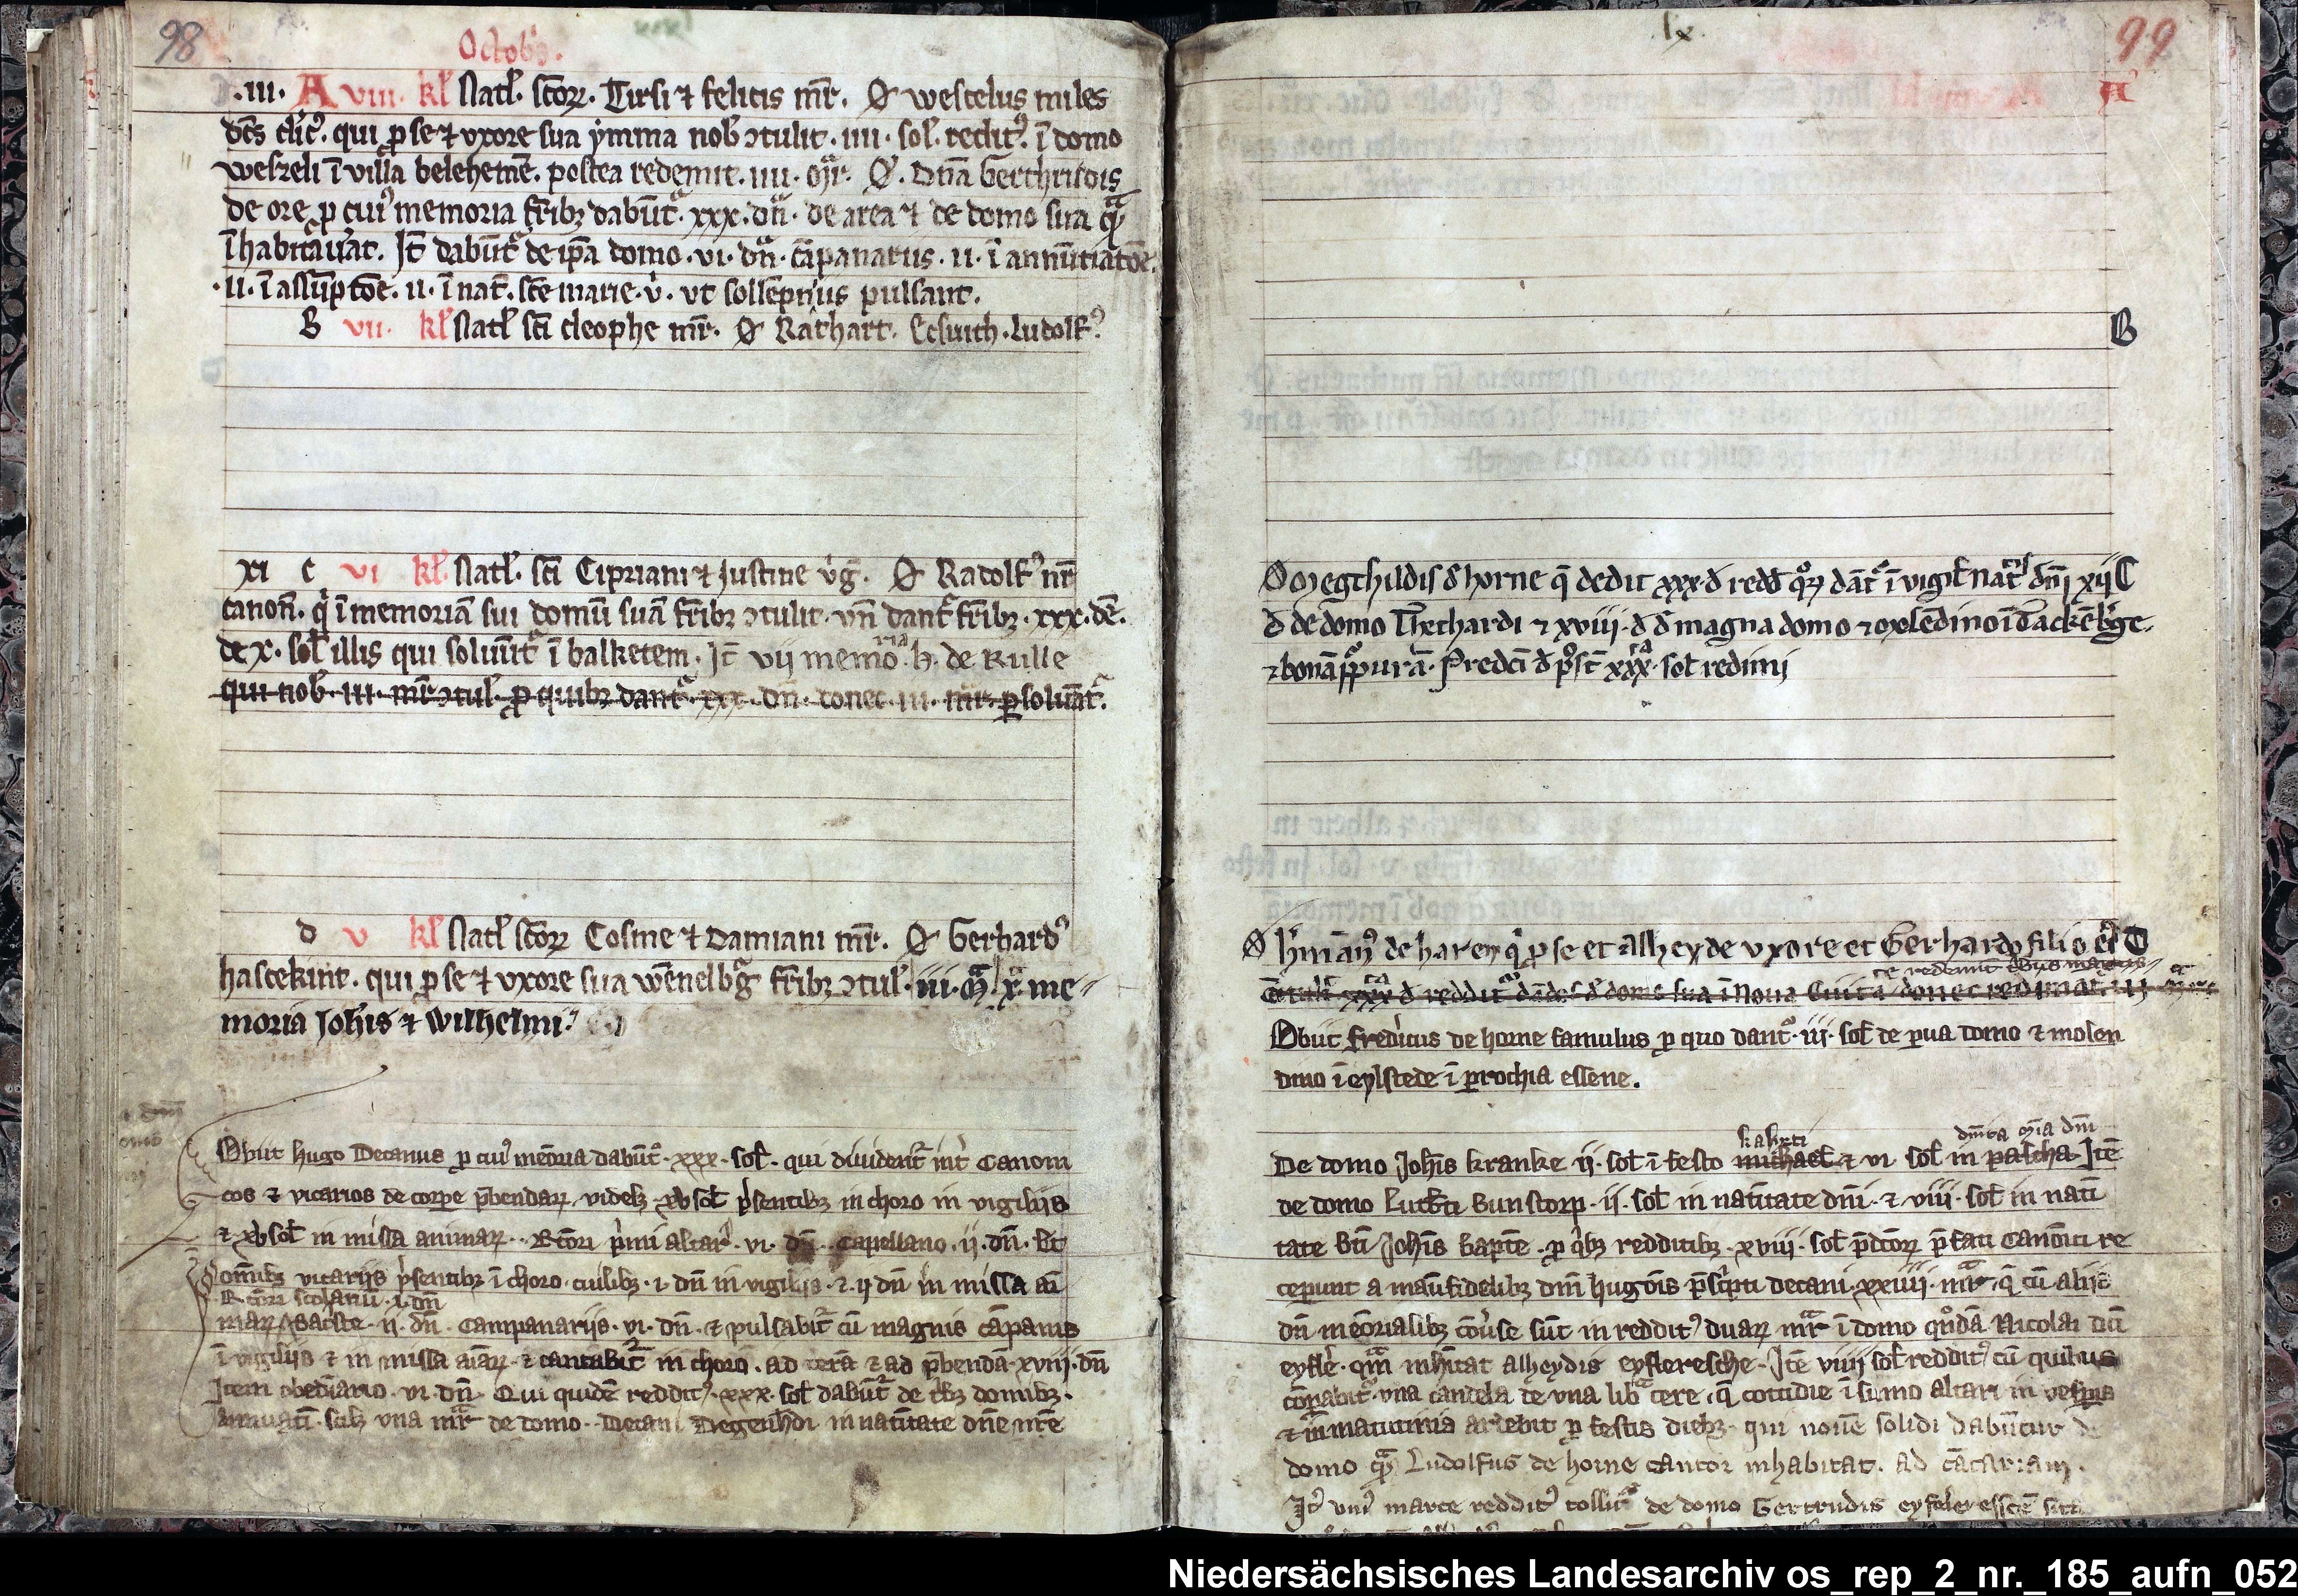 98
Octob'.
.iii. A viii. kl' Natl'. sc̄orꝝ. Tirsi ⁊ felicis mr̄. O' weſcelus miles
dc̄s cl'ic'. qui ꝓ ſe ⁊ vxore ſua ymma nob' ꝯtulit. iiii. ſol'. reddit'. ī domo
weſzeli ī villa belehem̄. poſtea redemit. iiii. mr̄. O'. Dn̄a Gerthrudis
de ore ꝓ cui' memoria fr̄ibꝫ dabūt'. xxx. dn̄. de area ⁊ de domo ſua qm̄
īhabitau'at. Jt̄ dabūt' de ip̄a domo. vi. dn̄. cāpanariis. ii. ī annūtiatōe.
.ii. ī aſſūptōe. ii. ī nat̄. ſc̄e marie. v'. vt ſollēpnius pulſant.
B vii. kl' Natl' ſc̄i cleophe mr̄. O' Rathart. Ecſuith. Ludolf'
xi c vi kl'. Natl'. ſc̄i Cipriani ⁊ Juſtine v'ḡ. O' Radolf' nr̄
canon̄. q' ī memoriā ſui domū ſuā fr̄ibꝫ ꝯtulit. vn̄ dant' fr̄ibꝫ. xxx. dē.
de x. ſol' illis qui ſoluūt' ī balketem. Jt̄ vij memo'ria. h. de Rulle
qui nob'. iii. mr̄ ꝯtul'. ꝓ quibꝫ dant'. xxx. dn̄. donec. iii. mr̄. ꝑſoluāt'.
d v kl' Natl' ſc̄orꝝ Coſme ⁊ Damiani mr̄. O' Gerhard'
haſtekint. qui ꝓ ſe ⁊ vxore ſua wēnelb'g fr̄ibꝫ ꝯtul'. iii. m. x. me
moria Joh'is ⁊ wilhelmi.
Obiit hugo Decanus ꝓ cui' mēoria dabūt'. xxx. ſol'. qui diuident' int' Canoni
cos ⁊ vicarios de corpe p̄bendarꝝ. videlꝫ. xv ſol' p'ſentibꝫ in choro in vigiliis
⁊ xv ſol' in miſſa animarꝝ. Rc̄ori p'mi altar'. vi. dn̄. Capellano. ij. dn̄. Et
om̄ibꝫ vicariis p'ſentibꝫ ī choro. cuilibꝫ. i. dn̄ in vigiliis. ⁊. ij dn̄ in miſſa ai
Rc̄ori ſcolariū. i. dn̄
marꝝ. Sac'ſte. ij. dn̄. Campanariis. vi. dn̄. ⁊ pulſabit' cū magnis cāpanis
ī vigiliis ⁊ in miſſa aīarꝝ. ⁊ cantabit' in choro. ad cerā ⁊ ad p̄bendā. xviij. dn̄
Jtem obediario. vi. dn̄. Qui quidē reddit'. xxx. ſol' dabūt' de t'bꝫ domibꝫ.
annuatī. ſcilꝫ vna mr̄ de domo. Decani Degenh'di in natitate dn̄e nr̄e
lx.
99
A
B
O' Megthildiſ d' horne q̄ dedit xxx. d' redd' qorꝝ dāt' ī vigil' nat' dn̄i xij C
d' de domo Gherhardi ⁊ xviij. d' d' magna domo ⁊ molēdino ī
O' h'man' de haren q' ꝓ ſe et alheyde vxore et Gerhardo filio ei' D
ꝯtul' xxx d' reddit' dādos d' domo ſua ī Noua Ciuita' donec redimat
Obiit fredericus de horne famulus ꝓ quo dant'. iii. ſol' de ꝑua domo ⁊ molen
dino ī eylſtede ī ꝑrochia eſſene.
De domo Joh'is kranke ij. ſol' ī feſto michael' ⁊ vi ſol' in paſcha Jtē
de domo Lutb'ti Bunſtorp. ij. ſol' in natitate dn̄i. ⁊ viii. ſol' in nati
tate bt̄i Joh'is bapte. ꝓ q'bꝫ redditibꝫ. xviii. ſol' p̄dc̄orꝝ p̄fati Canōici re
ceperunt a manufidelibꝫ dn̄i hugōis p̄ſc'pti decani. xxiiij. mr̄. q̄ cū aliis
dn̄ mēorialibꝫ cōu'ſe ſūt in reddit' duarꝝ mr̄ ī domo quōdā Nicolai dc̄i
eyfler'. qm̄ inhitat alheydis eyflereſche. Jtē viiij ſol' reddit' cū quibus
cōꝑabit' vna candela de vna lib' cere. q̄ cottidie ī ſūmo altari in veſꝑis
⁊ in matutinis ardebit ꝓ feſtis diebꝫ. qui nouē ſolidi dabūtur de
domo qm̄ Ludolfus de horne cantor inhabitat. ad cācariam.
Jt' vni' marce reddit' tollit' de domo Gertrudis
Niedersächsisches Landesarchiv os_rep_2_nr._185_aufn_052